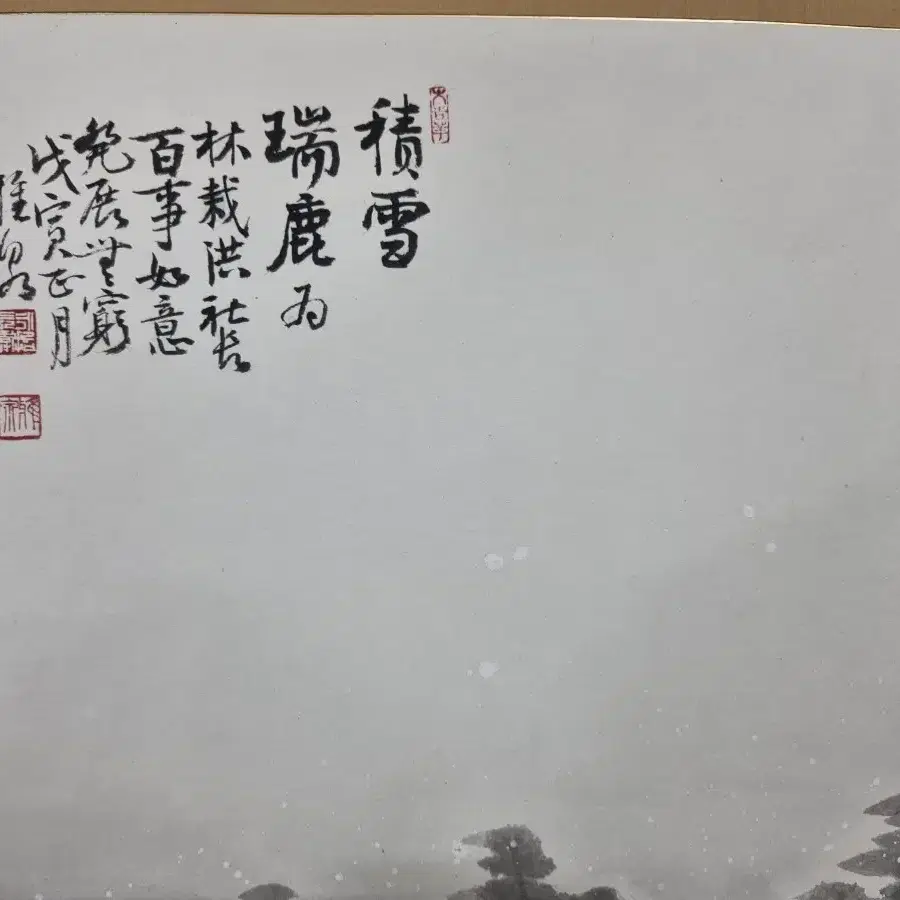 積雪
瑞鹿為
林栽洪社長
百事如意
發展無窮
戊寅正月